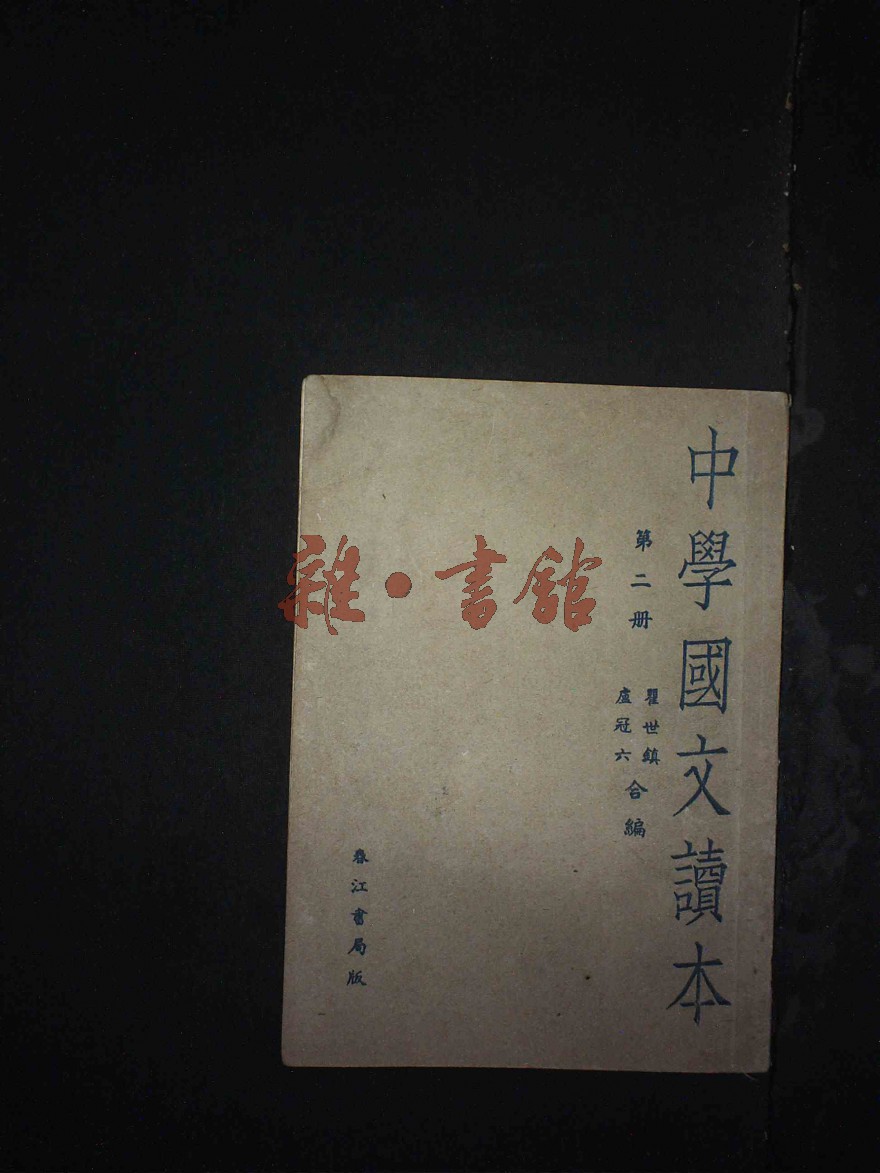 中學國文讀本
第二册
瞿世鎮
盧冠六
合編
春江書局版
雜·書館